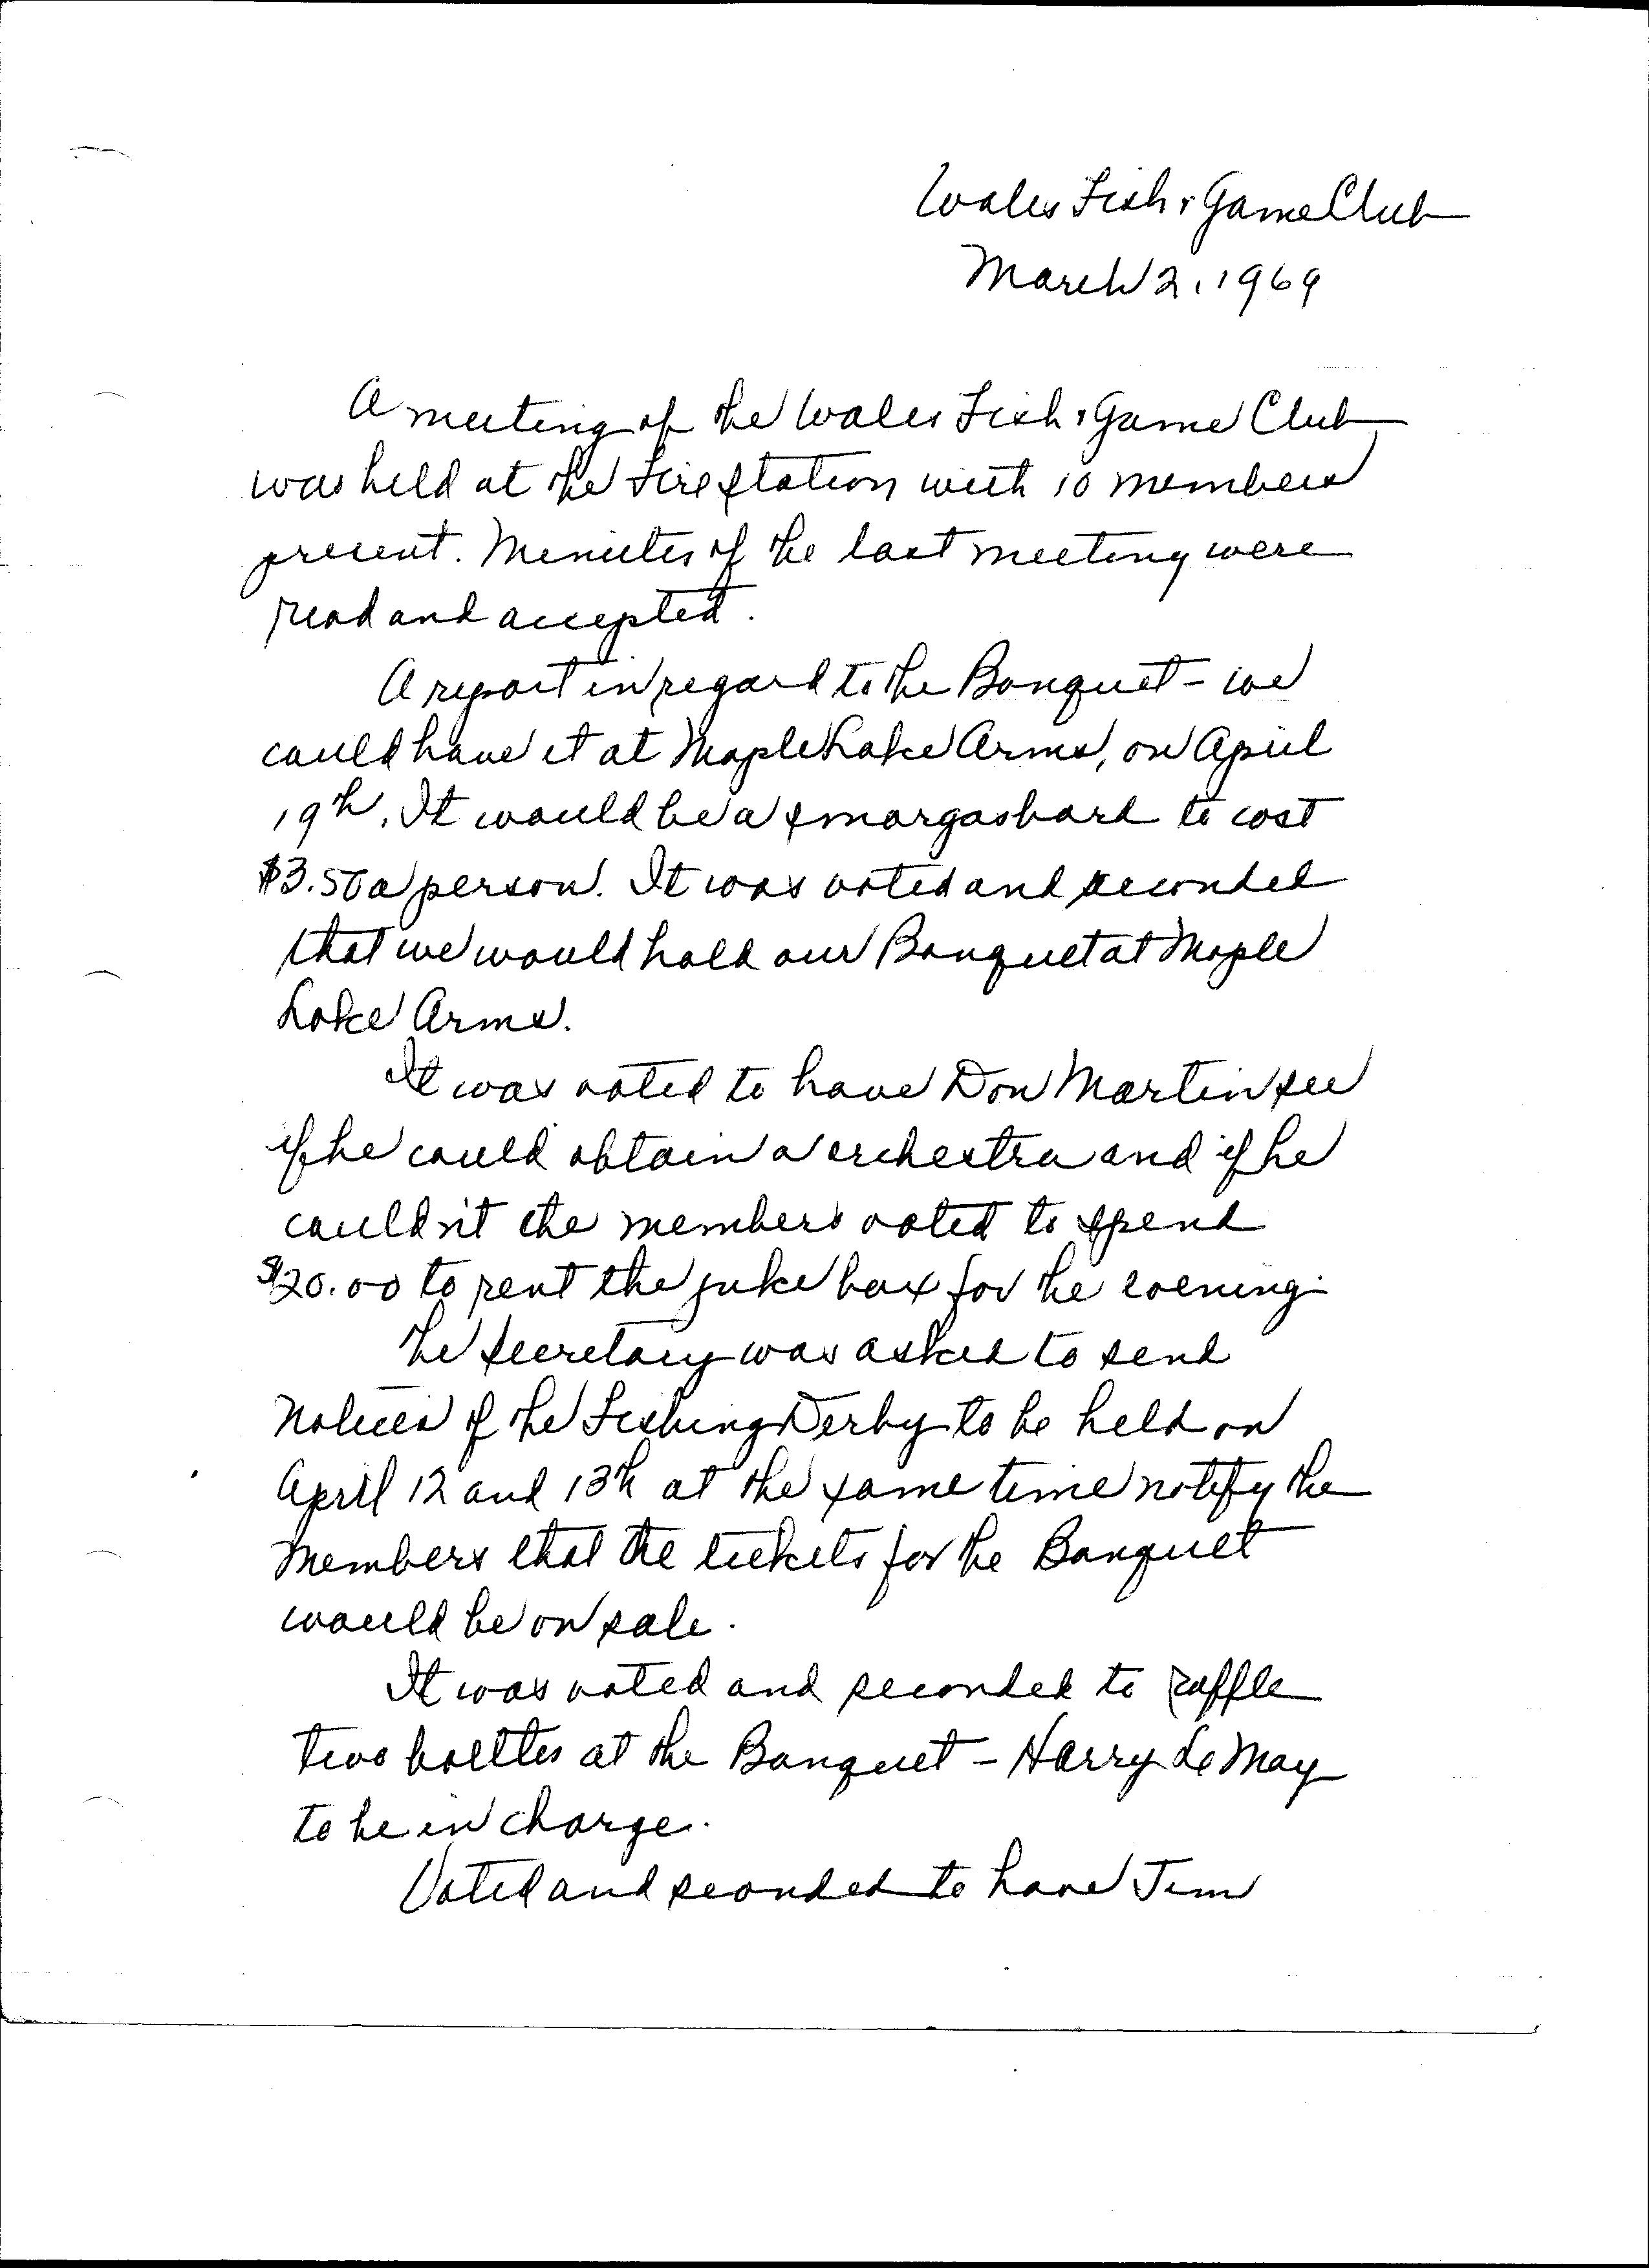 Wales Fish & Game Club
March 2, 1969
A meeting of the Wales Fish & Game Club
was held at the Fire Station with 10 members
present. Minutes of the last meeting were
read and accepted.
A report in regard to the Banquet - we
could have it at Maple Lake Arms, on April
19th. It would be a smorgasbord to cost
$3.50 a person. It was voted and seconded
that we would hold our Banquet at Maple
Lake Arms.
It was voted to have Don Martin see
if he could obtain a orchestra and if he
couldn't the members voted to spend
$20.00 to rent the juke box for the evening.
The Secretary was asked to send
notices of the Fishing Derby to be held on
April 12 and 13th at the same time notify the
members that the tickets for the Banquet
would be on sale.
It was voted and seconded to raffle
two bottles at the Banquet - Harry LeMay
to be in charge.
Voted and seonded to have Jim